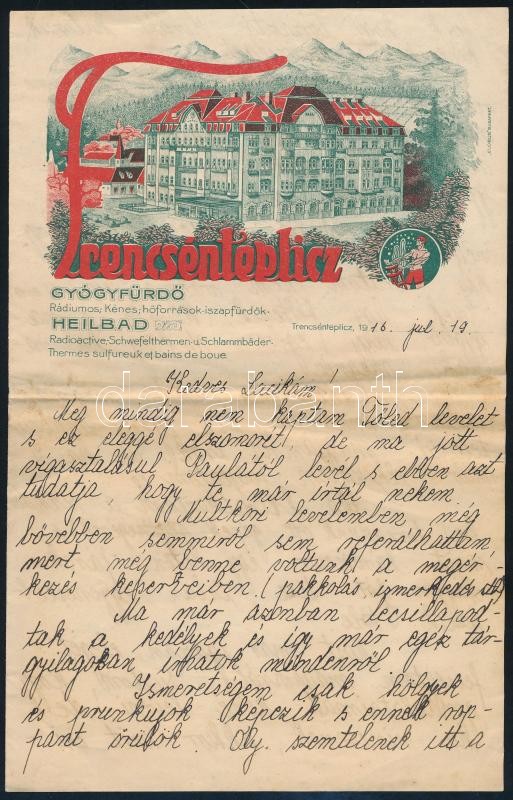 Trencséntéplicz
GYÓGYFÜRDŐ
Rádiumos, Kénes, hőforrások-iszapfürdők.
HEILBAD
Radioactive, Schwefelthermen- u. Schlammbäder.
Thermes sulfureux et bains de boue.
Trencsénteplicz, 1916. jul. 19.
darabanth
Kedves Lacikám!
Meg mindig nem kaptam Tőled levelet
s ez eléggé elszomorít, de ma jött
vigasztalásul Paulától levél s ebben azt
tudatja, hogy te már írtál nekem.
Multkori levelemben még
bővebben semmiről sem referálhattam
mert még benne voltunk a megér-
kezés képerveiben. (pakkolás, ismerkedés stb)
Ma már azonban lecsillapod-
tak a kedélyek és így már egész tár-
gyilagosan írhatok mindenről.
Ismeretségem csak hölgyek
és prunkujok képezik s ennek rop-
pant örülök. Oly szemtelenek itt a